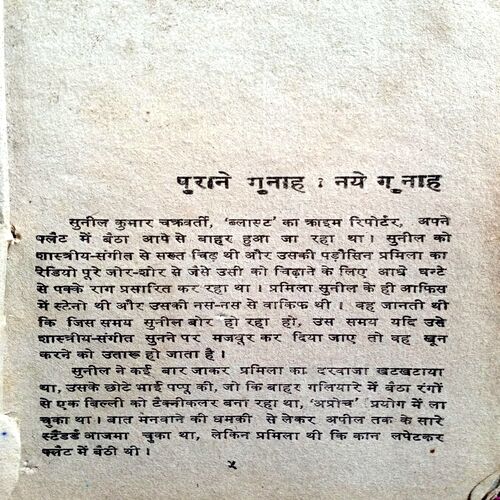 पुराने गुनाह : नये गुनाह
सुनील कुमार चक्रवर्ती, ‘ब्लास्ट’ का क्राइम रिपोर्टर, अपने
फ्लैट में बैठा आपे से बाहर हुआ जा रहा था। सुनील को
शास्त्रीय-संगीत से सख्त चिढ़ थी और उसकी पड़ौसिन प्रमिला का
रेडियो पूरे जोर-शोर से जैसे उसी को चिढ़ाने के लिए आधे घन्टे
से पक्के राग प्रसारित कर रहा था। प्रमिला सुनील के ही आफिस
में स्टेनो थी और उसकी नस-नस से वाकिफ थी। वह जानती थी
कि जिस समय सुनील बोर हो रहा हो, उस समय यदि उसे
शास्त्रीय-संगीत सुनने पर मजबूर कर दिया जाए तो वह खून
करने को उतारू हो जाता है।
सुनील ने कई बार जाकर प्रमिला का दरवाजा खटखटाया
था, उसके छोटे भाई पप्पू की, जो कि बाहर गलियारे में बैठा रंगों
से एक बिल्ली को टैक्नीकलर बना रहा था, ‘अप्रोच’ प्रयोग में ला
चुका था। बात मनवाने की धमकी से लेकर अपील तक के सारे
स्टैंडर्ड आजमा चुका था, लेकिन प्रमिला थी कि कान लपेटकर
फ्लैट में बैठी थी।
५